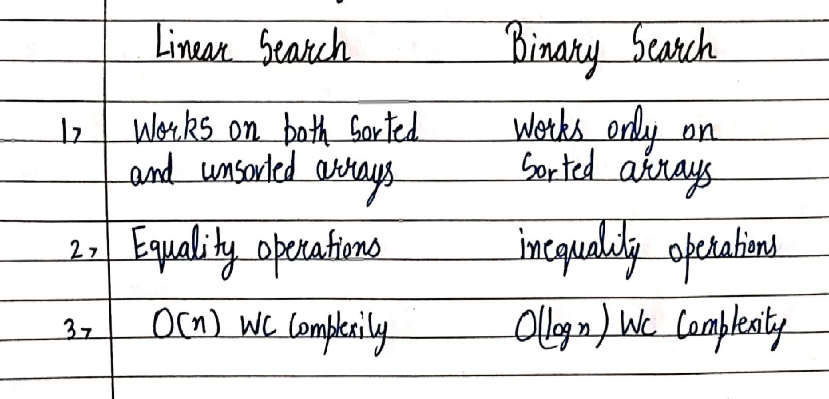 Linear Search Binary Search
1> Works on both Sorted Works only on
and unsorted arrays Sorted arrays
2> Equality operations inequality operations
3> O(n) WC Complexity O(log n) WC Complexity